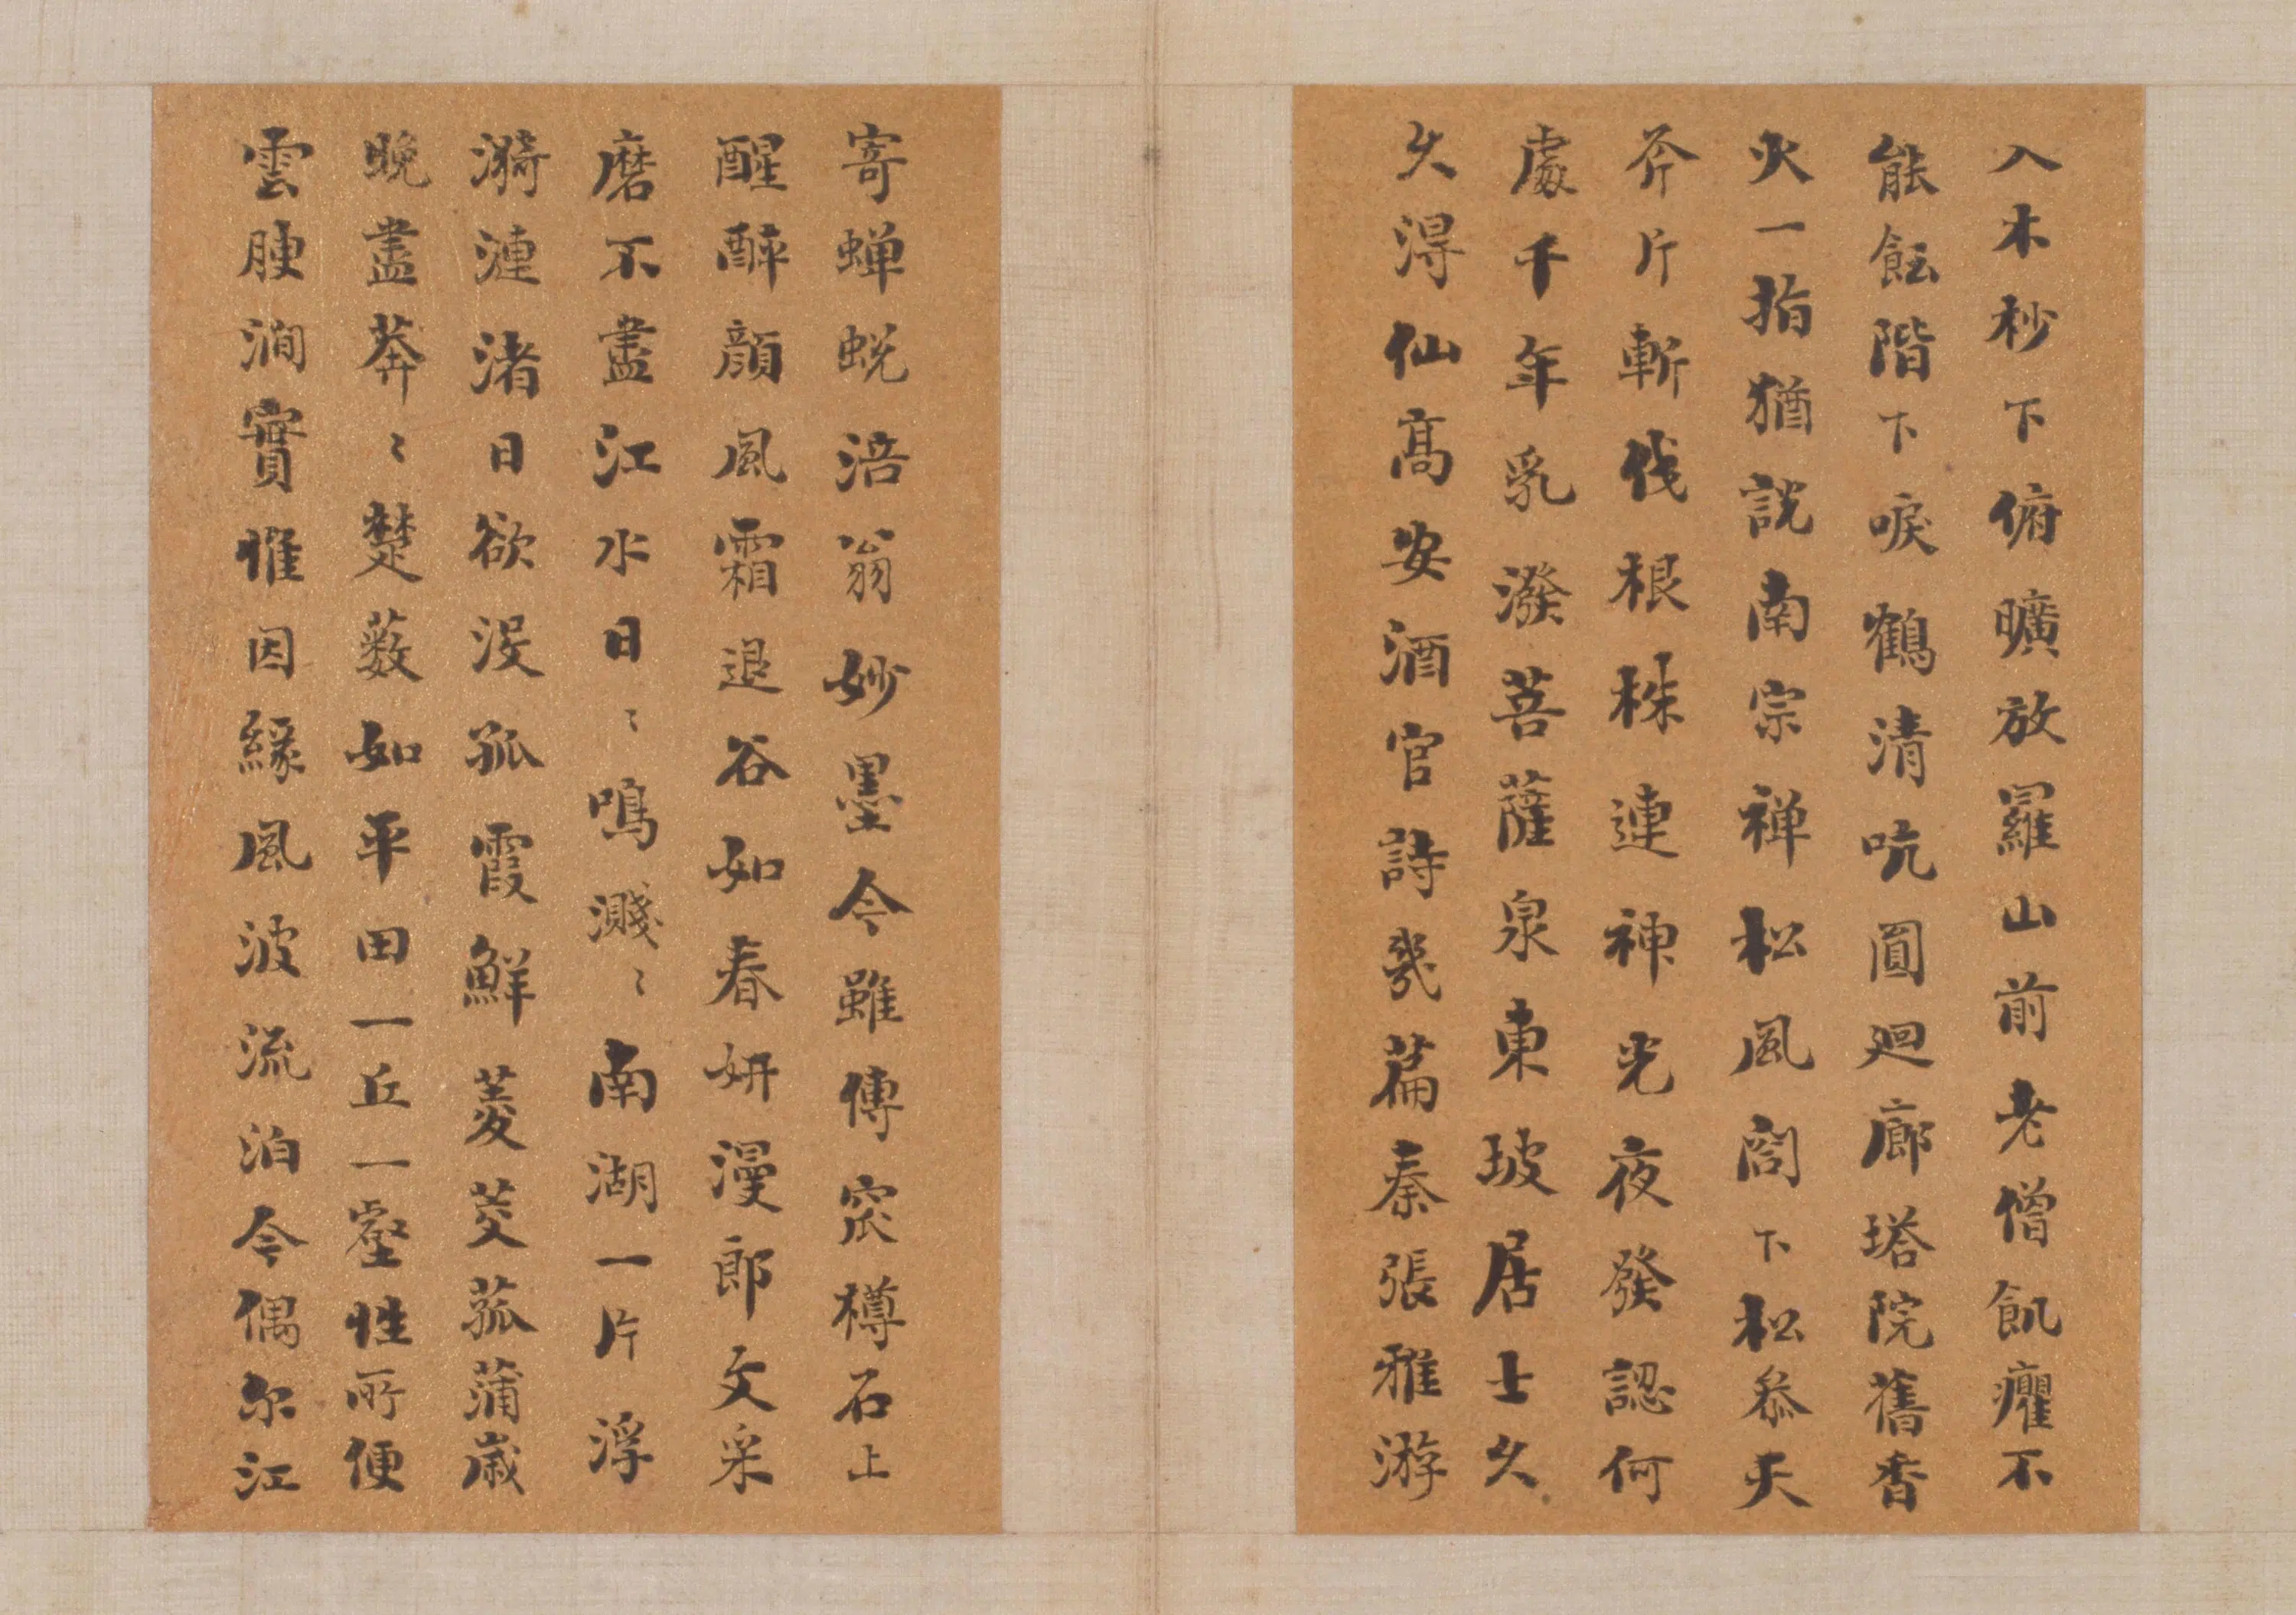 入木杪下俯曠放羅山前老僧飢癯不
能飪階下唳鶴清吭圓廻廊塔院舊香
火一指猶説南宗禅松風閣下松參天
斧片斬伐根株連神光夜發認何
處千年乳潑菩薩泉東坡居士久
久得仙高安酒官詩幾篇秦張雅游
寄蟬蜕涪翁妙墨今雖傳窊樽石上
醒醉顔風霜退谷如春妍漫郎文采
磨不盡江水日〻鳴濺〻南湖一片浮
漪漣渚日欲没孤霞鮮菱芡菰蒲嵗
晚盡莽〻楚藪如平田一丘一壑性所便
雲腴澗實惟因緣風波流泊今偶尔江